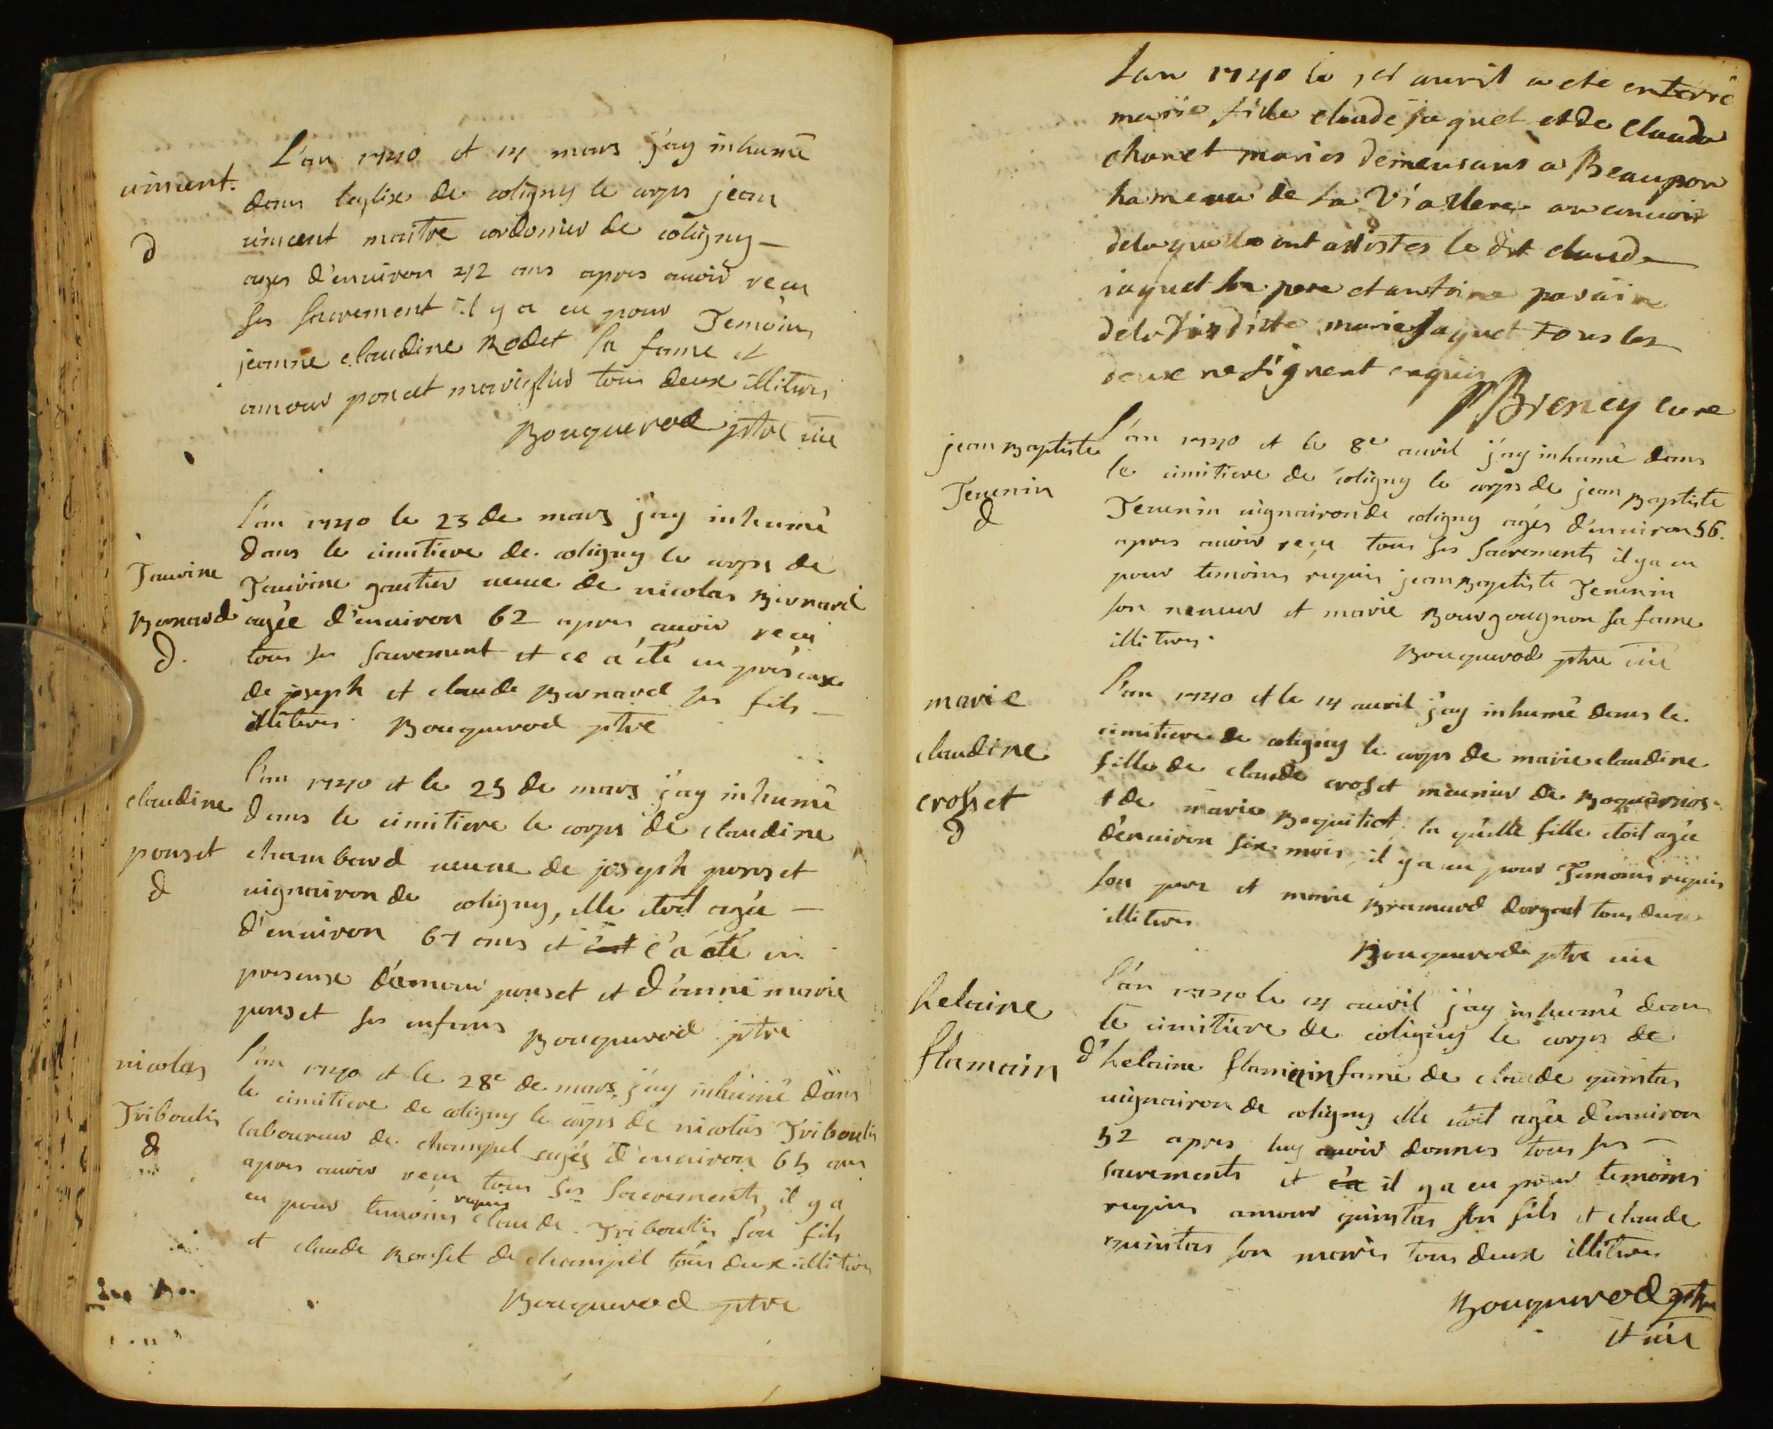 vincent.
d
L'an 1740 et 14 mars j'ay inhumé
dans leglise de coligny le corps jean
vincent maitre cordonier de coligny
agés d'environ 42 ans apres avoir reçu
ses sacrement il y a eu pour Temoins
jeanne claudine Rodet sa fame et
amour poncet tous deux illiteres
Bouquerod ptre vic
Bernard
d.
l'an 1740 le 23 de mars j'ay inhumé
dans le cimitiere de coligny le corps de
gautier veuve de nicolas Bernard
agée d'environ 62 apres avoir reçu
tous ses sacrement et ce a été en présence
de joseph et claude Bernard ses fils
illiteres. Bouquerod ptre
claudine
ponset
d
l'an 1740 et le 25 de mars j'ay inhumé
dans le cimitiere le corps de claudine
chambard veuve de joseph ponset
vigneron de coligny, elle etoit agée
d'environ 67 ans et c'a été en
presense d'amour ponset et d'anne marie
ponset ses enfans Bouquerod ptre
nicolas
Triboulis
d
l'an 1740 et le 28e de mars j'ay inhumé dans
le cimitiere de coligny le corps de nicolas Triboulis
laboureur de champel agés d'environ 65 ans
apres avoir reçu tous ses sacrements, il y a
eu pour temoins requis claude Triboulis son fils
et claude de champel tous deux illiteres
Bouquerod ptre
Lan 1740 le avril a ete enterré
marie fille claude jaquet et de clauda
chanet maries demeurans a Beaupon
hameau de la au convoir
delaquelle ont assistes le dit claude
jaquet son pere et antoine parain
dela ditte marie jaquet tous les
deux ne signent enquis
Breney cure
jean Baptiste
Jeunin
d
l'an 1740 et le 8e avril j'ay inhumé dans
le cimitiere de coligny le corps de jean Baptiste
Jeunin vigneron de coligny agés d'environ 56.
apres avoir reçu tous ses sacrements il y a eu
pour temoins requis jean Baptiste Jeunin
son neveur et marie Bourgougnon sa fame
illiteres. Bouquerod ptre vic
marie
claudine
crosset
d
l'an 1740 et le 14 avril j'ay inhumé dans le
cimitiere de coligny le corps de marie claudine
fille de claude crosset meunier de
et de marie la quelle fille etoit agée
d'environ six mois, il y a eu pour Temoins requis
son pere et marie tous deux
illiteres
Bouquerod ptre vic
helaine
flamain
d
l'an 1740 le 14 avril j'ay inhumé dans
le cimitiere de coligny le corps de
d'helaine flamain fame de claude quintas
vigneron de coligny elle etoit agée d'environ
52 apres luy avoir donnes tous ses
sacrements et il y a eu pour temoins
requis amour quintas son fils et claude
quintas son maris tous deux illiteres
Bouquerod ptre
et vic